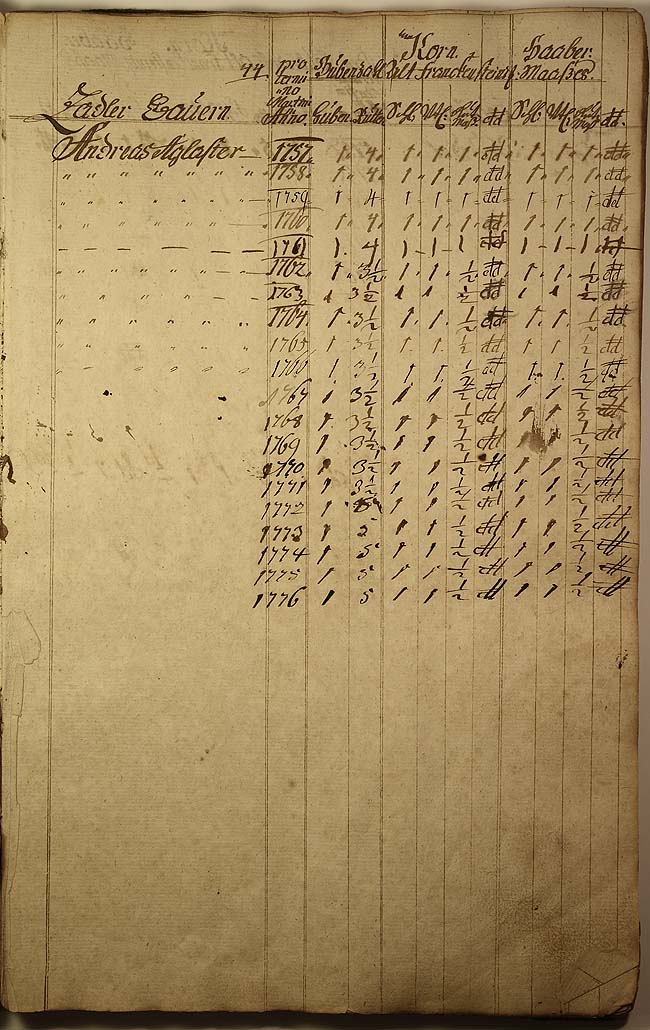 Korn. Haaber.
44. pro termino Martini Anno. Hubenzahl Alt Franckensteinis. Maaßes.
Zadler Bauern. Huben. Ruthen
Andreas Aglaster 1757. 1. 4. 1. 1. 1 dd 1. 1. 1 dd.
" " " " " " " 1758. 1. 4. 1. 1. 1 dd 1. 1. 1 dd.
" " " " " " " 1759. 1 4 1 1 1 dd 1 1 1 dd
" " " " " " " 1760. 1. 4. 1. 1. 1 dd 1. 1. 1 dd.
— — — — — — — 1761 1. 4 1 - 1 - 1 dd 1 - 1 - 1 dd
" " " " " " " 1762. 1. 3½ 1. 1. ½ dd 1. 1. ½ dd
" " " " " " " 1763. 1 3½ 1 1 ½ dd 1 1 ½ dd
" " " " " " " 1764. 1. 3½ 1. 1. ½ dd 1. 1. ½ dd
" " " " " " " 1765 1 3½ 1 1 ½ dd 1 1 ½ dd
" " " " " " " 1766 1. 3½ 1 1 ½ dd 1. 1. ½ dd
1767 1. 3½ 1 1 ½ dd 1 1 ½ dd
1768 1. 3½ 1 1 ½ dd 1 1 ½ dd
1769 1. 3½ 1 1 ½ dd ½ dd
1770 1 3½ 1 1 ½ dd 1 1 ½ dd
1771 1 3½ 1 1 ½ dd 1 1 ½ dd
1772 1 5 1 1 ½ dd 1 1 ½ dd
1773 1 5 1 1 ½ dd 1 1 ½ dd
1774 1 5 1 1 ½ dd 1 1 ½ dd
1775 1 5 1 1 ½ dd 1 1 ½ dd
1776 1 5 1 1 ½ dd 1 1 ½ dd